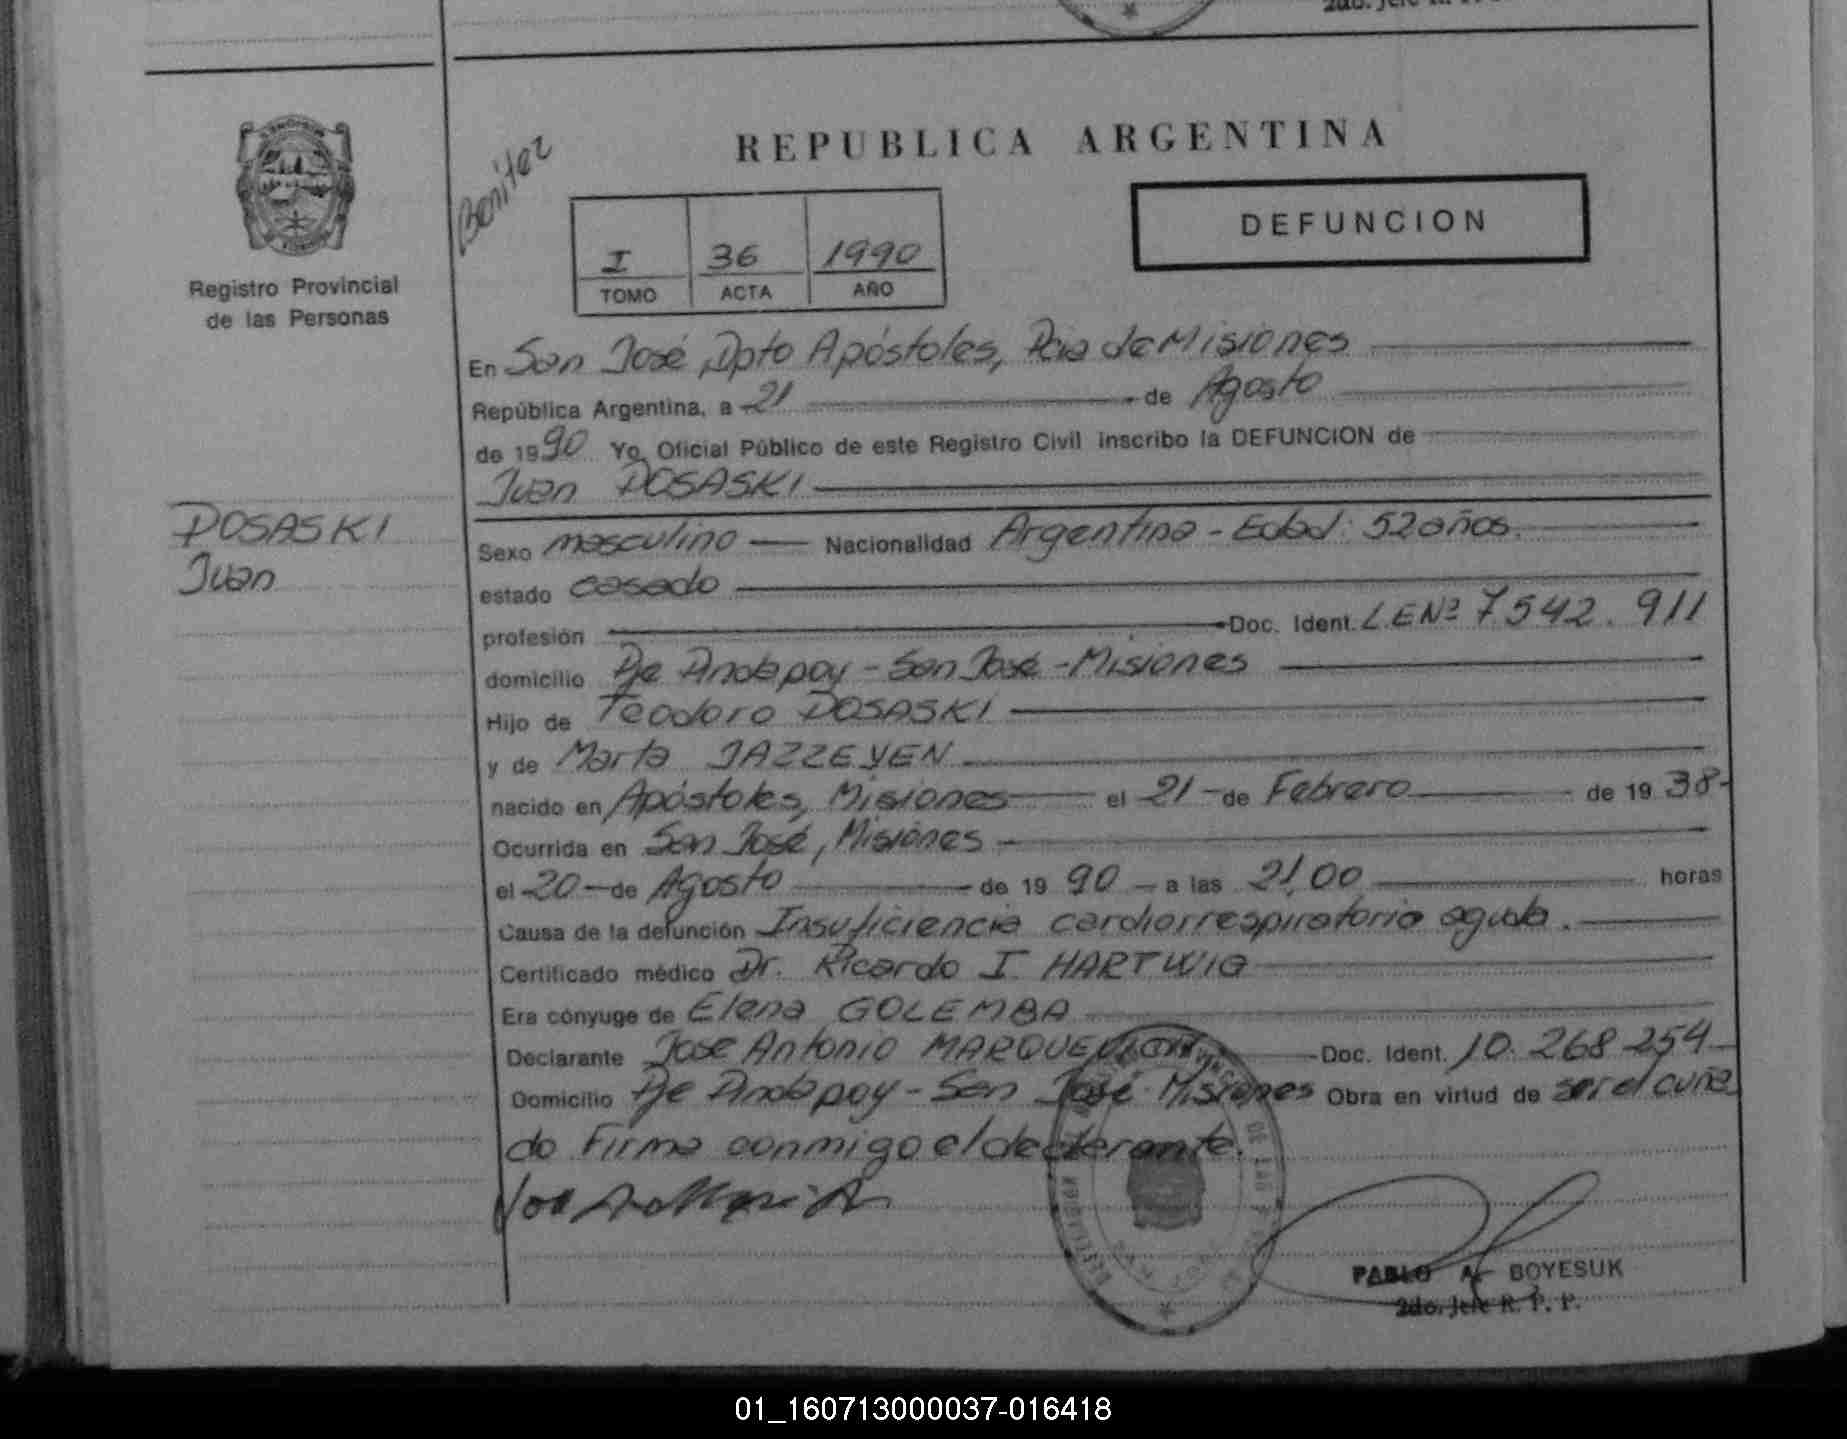 REPUBLICA ARGENTINA
Benitez
DEFUNCION
I 36 1990
TOMO ACTA AÑO
Registro Provincial
de las Personas
En San José, Dpto Apóstoles, Pcia de Misiones
República Argentina, a 21 de Agosto
de 1990 Yo, Oficial Público de este Registro Civil inscribo la DEFUNCION de
Juan POSASKI
POSASKI
Juan
Sexo masculino Nacionalidad Argentina - Edad: 52 años.
estado casado
profesión Doc. Ident. L.E Nº 7.542.911
domicilio Pje Pindapoy - San José - Misiones
Hijo de Teodoro POSASKI
y de Marta JAZZEYEN
nacido en Apóstoles, Misiones el 21 - de Febrero de 1938-
Ocurrida en San José, Misiones
el 20 - de Agosto de 1990 - a las 21,00 horas
Causa de la defunción Insuficiencia cardiorrespiratoria aguda.
Certificado médico Dr. Ricardo I. HARTWIG
Era cónyuge de Elena GOLEMBA
Declarante José Antonio Doc. Ident. 10.268.254
Domicilio Pje Pindapoy - San José - Misiones Obra en virtud de ser el cuña
do Firma conmigo el declarante.
PABLO A. BOYESUK
2do. Jefe R. P. P.
01_160713000037-016418